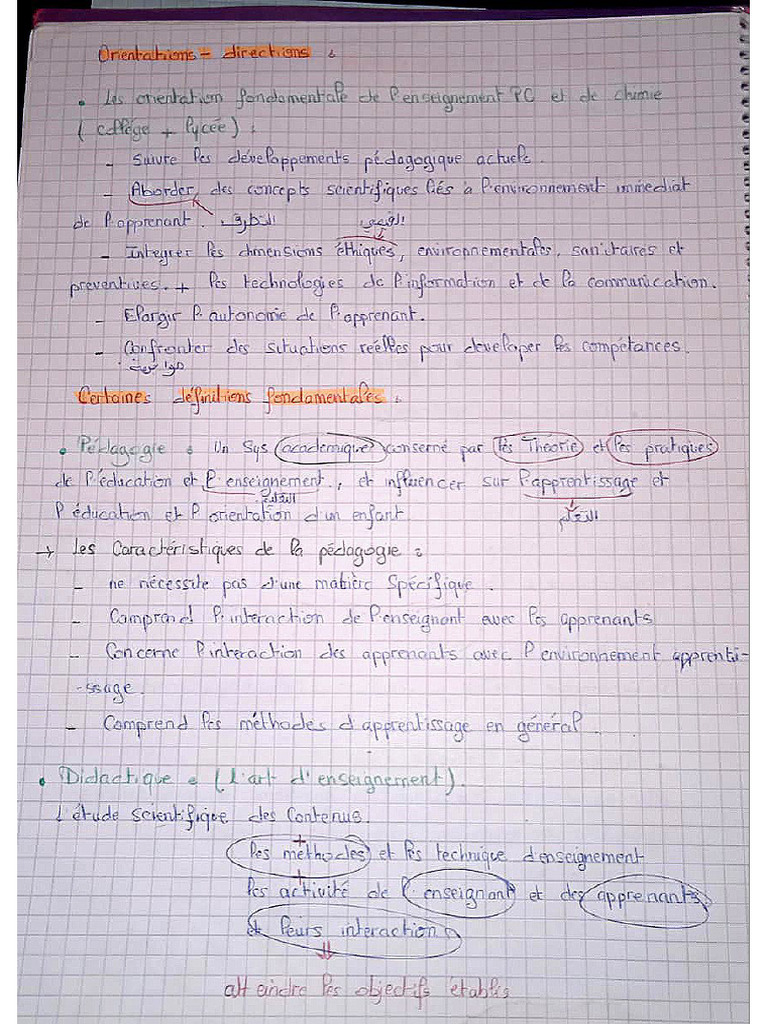 Orientations - directions :
• Les orientation fondamentale de l'enseignement PC et de chimie
(collége + lycée) :
- Suivre les développements pédagogique actuels.
- Aborder, des concepts scientifiques liés à l'environnement immédiat
de l'apprenant. التطرق
- Integrer les dimensions éthiques, environnementales, sanitaires et
preventives. + les technologies de l'information et de la communication.
- Elargir l'autonomie de l'apprenant.
- Confronter des situations réelles pour developer les compétances.
Certaines définitions fondamentales :
• Pédagogie : Un Sys (academique) conserné par les Théorie et les pratiques
de l'éducation et l'enseignement, et influencer sur l'apprentissage et
التعليم
l'éducation et l'orientation d'un enfant التعلم
→ les Caractéristiques de la pédagogie :
- ne nécessite pas d'une matière Spécifique.
- Comprend l'interaction de l'enseignant avec les apprenants
- Concerne l'interaction des apprenants avec l'environnement apprenti-
-ssage.
- Comprend les méthodes d'apprentissage en général.
• Didactique : (L'art d'enseignement).
L'étude scientifique des Contenus.
+
les méthodes et les technique d'enseignement
+
les activité de l'enseignant et des apprenants
et leurs interactions
⇓
atteindre les objectifs établis